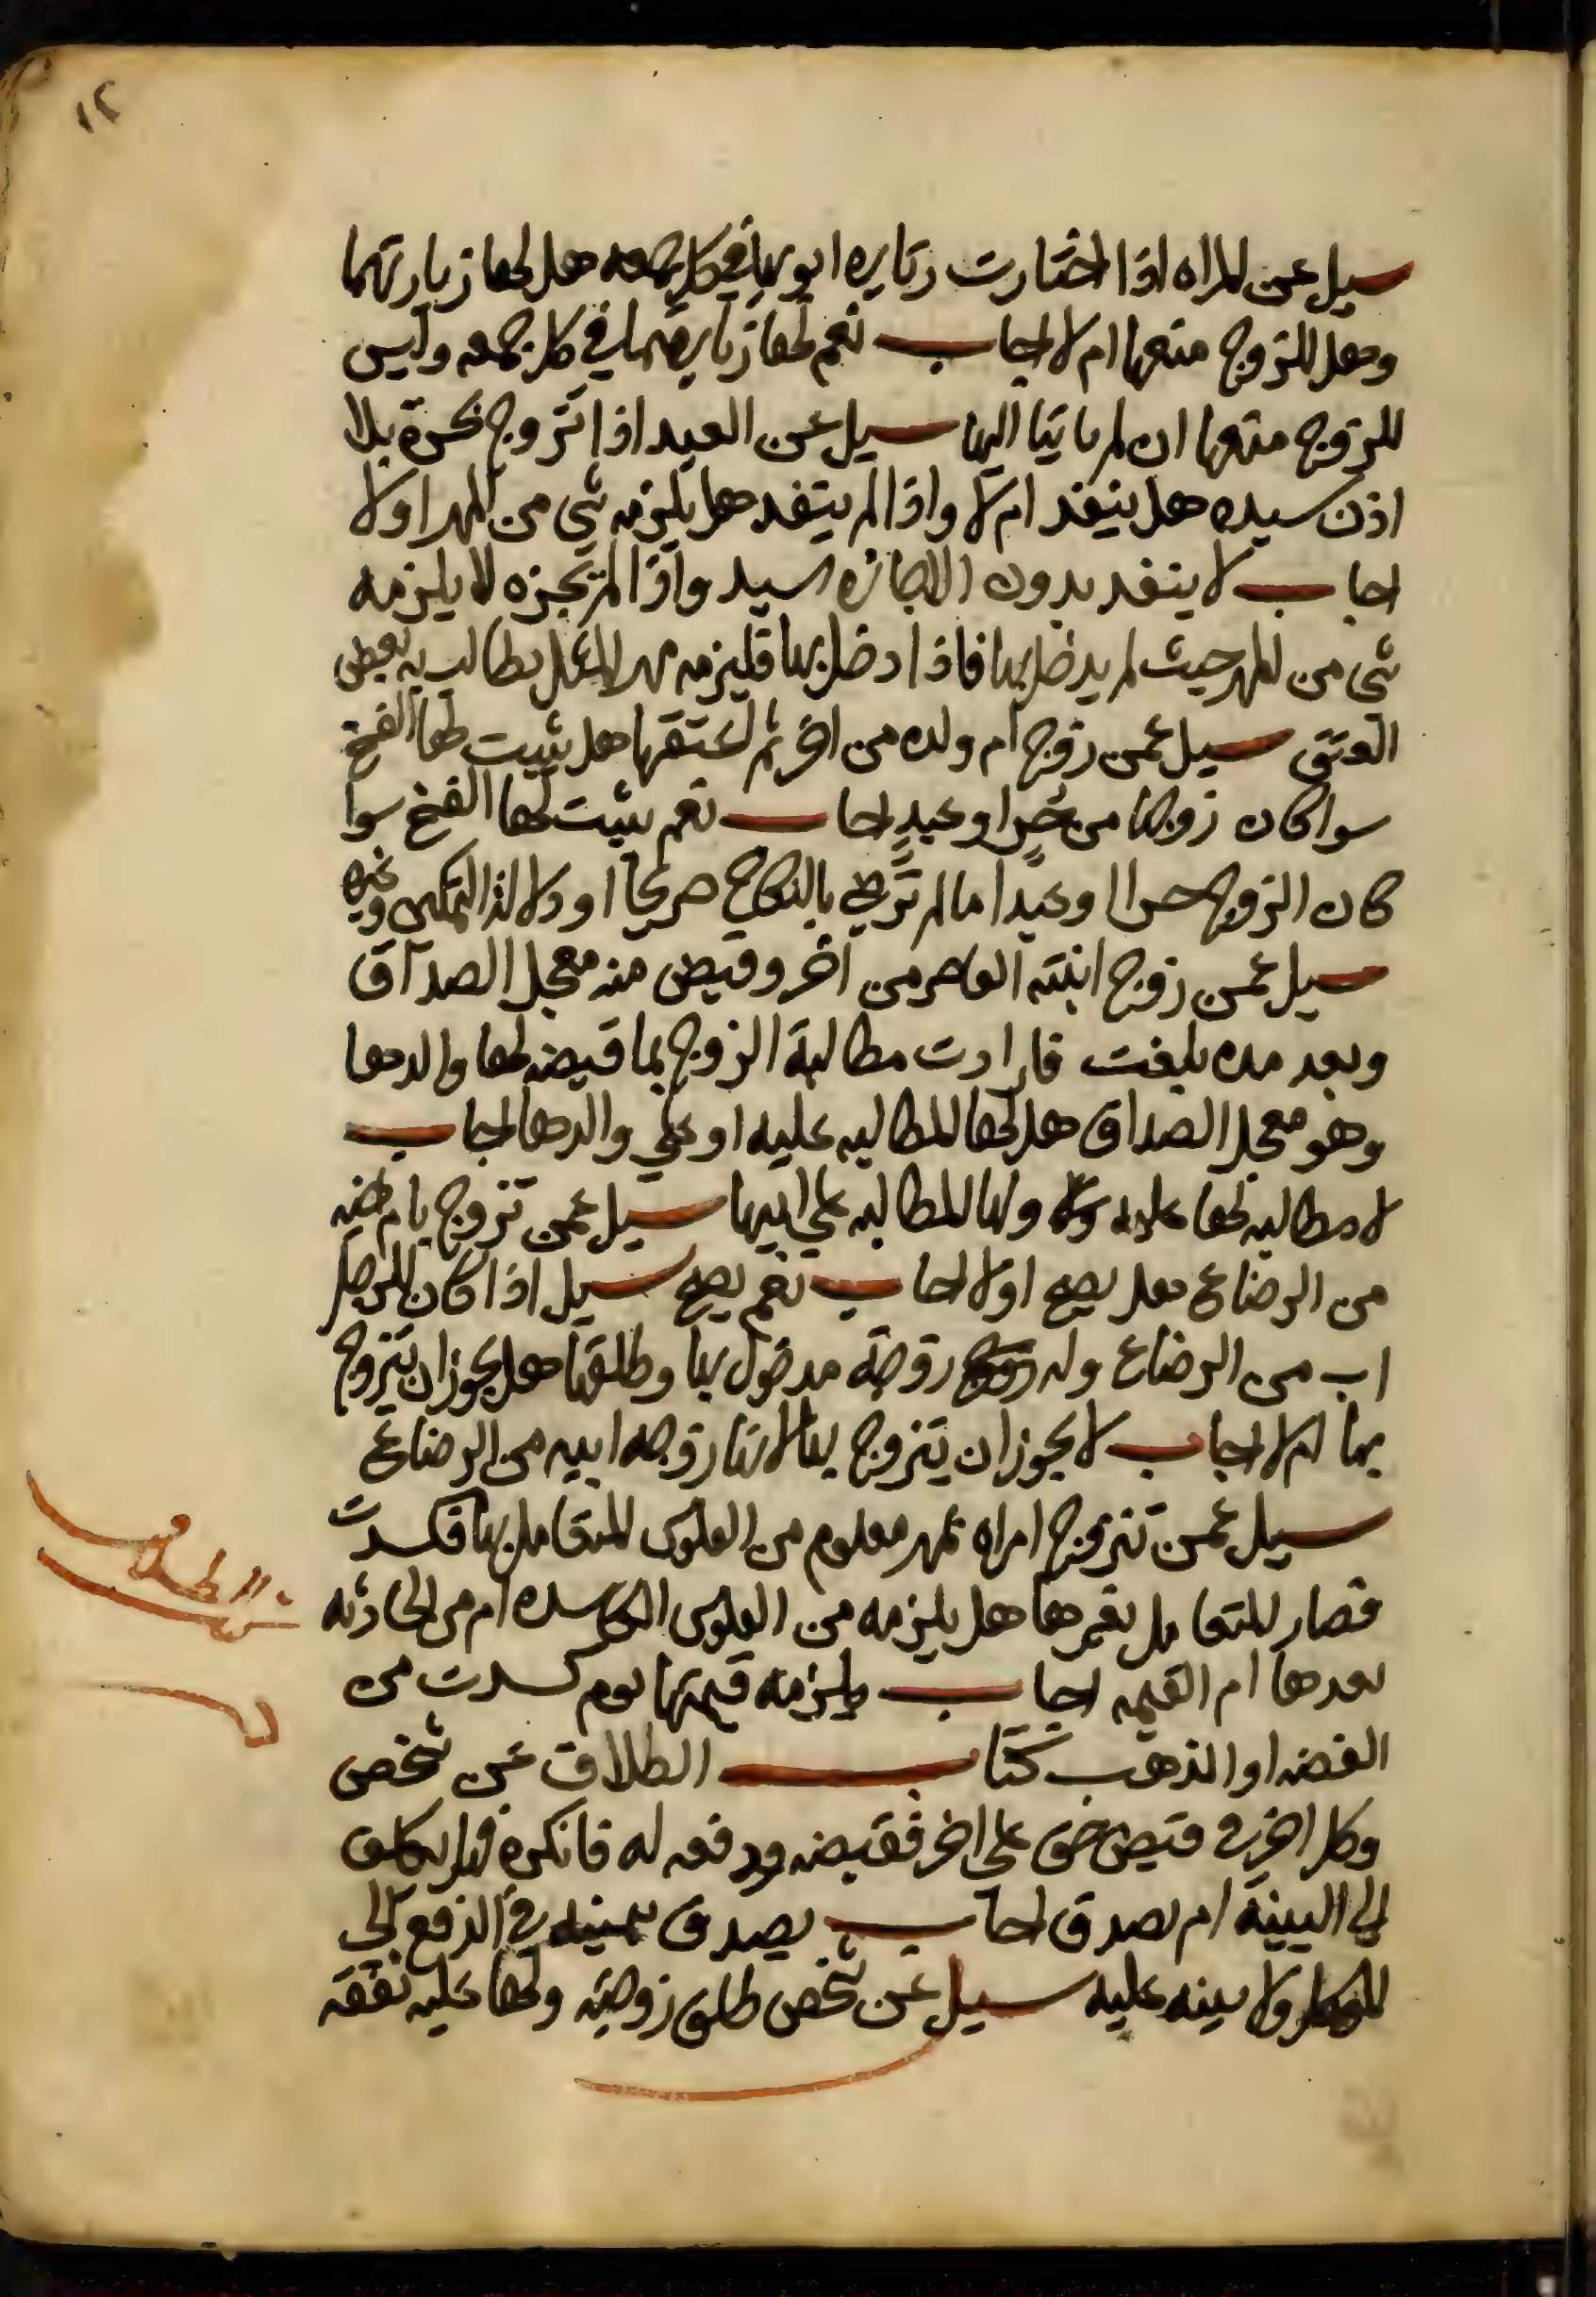 ١٢
سيل عن المراه اذا اختارت زيارة ابويها في كل جمعه هل لها زيارتهما
وهل للزوج منعها ام لا اجاب نعم لها زيارتهما في كل جمعه وليس
للزوج منعها ان لم ياتيا اليها سيل عن العبد اذا تزوج بحرة بلا
اذن سيده هل ينفذ ام لا واذا لم ينفد هل يلزمه شي من المهر اولا
اجاب لا ينفد بدون الاجازه السيد واذا لم يجزه لا يلزمه
شي من المهر حيث لم يدخل بها فاذا دخل بها فليزمه مهر المثل يطالب به بعض
العتق سيل عمن زوج ام ولده من اخر ثم اعتقها هل يثبت لها الفسخ
سوا كان زوجها من حر او عبد اجاب نعم يثبت لها الفسخ سوا
كان الزوج حرا او عبدا ما لم ترض بالنكاح صريحا او دلالة التمكين وغيره
سيل عمن زوج ابنته القاصر من اخر وقبض منه معجل الصداق
وبعد مده بلغت فارادت مطالبة الزوج بما قبضه لها والدها
وهو معجل الصداق هل لها المطالبه عليه او على والدها اجاب
لا مطالبه لها عليه ولها المطالبه علي ابيها سيل عمن تزوج بام اخيه
من الرضاع هل يصح اولا اجاب نعم يصح سيل اذا كان للرجل
اب من الرضاع وله زوجة مدخول بها وطلقها هل يجوز ان يتزوج
بها ام لا اجاب لا يجوز ان يتزوج بها لانها زوجه ابيه من الرضاع
سيل عمن تزوج امراه بمهر معلوم من الفلوس المتعامل بها فكسدت
فصار المتعامل بغيرها هل يلزمه من الفلوس الكاسده ام من الحادثه
بعدها ام القيمه اجاب يلزمه قيمتها يوم كسدت من
الفضه او الذهب كتاب الطلاق عن شخص
وكل اخر في قبض حق على اخر فقبضه ودفعه له فانكره فهل يكلف
الي البينة ام يصدق اجاب يصدق بيمينه في الدفع الي
الموكل ولا بينه عليه سيل عن شخص طلق زوجته ولها عليه نفقه
الطلاق